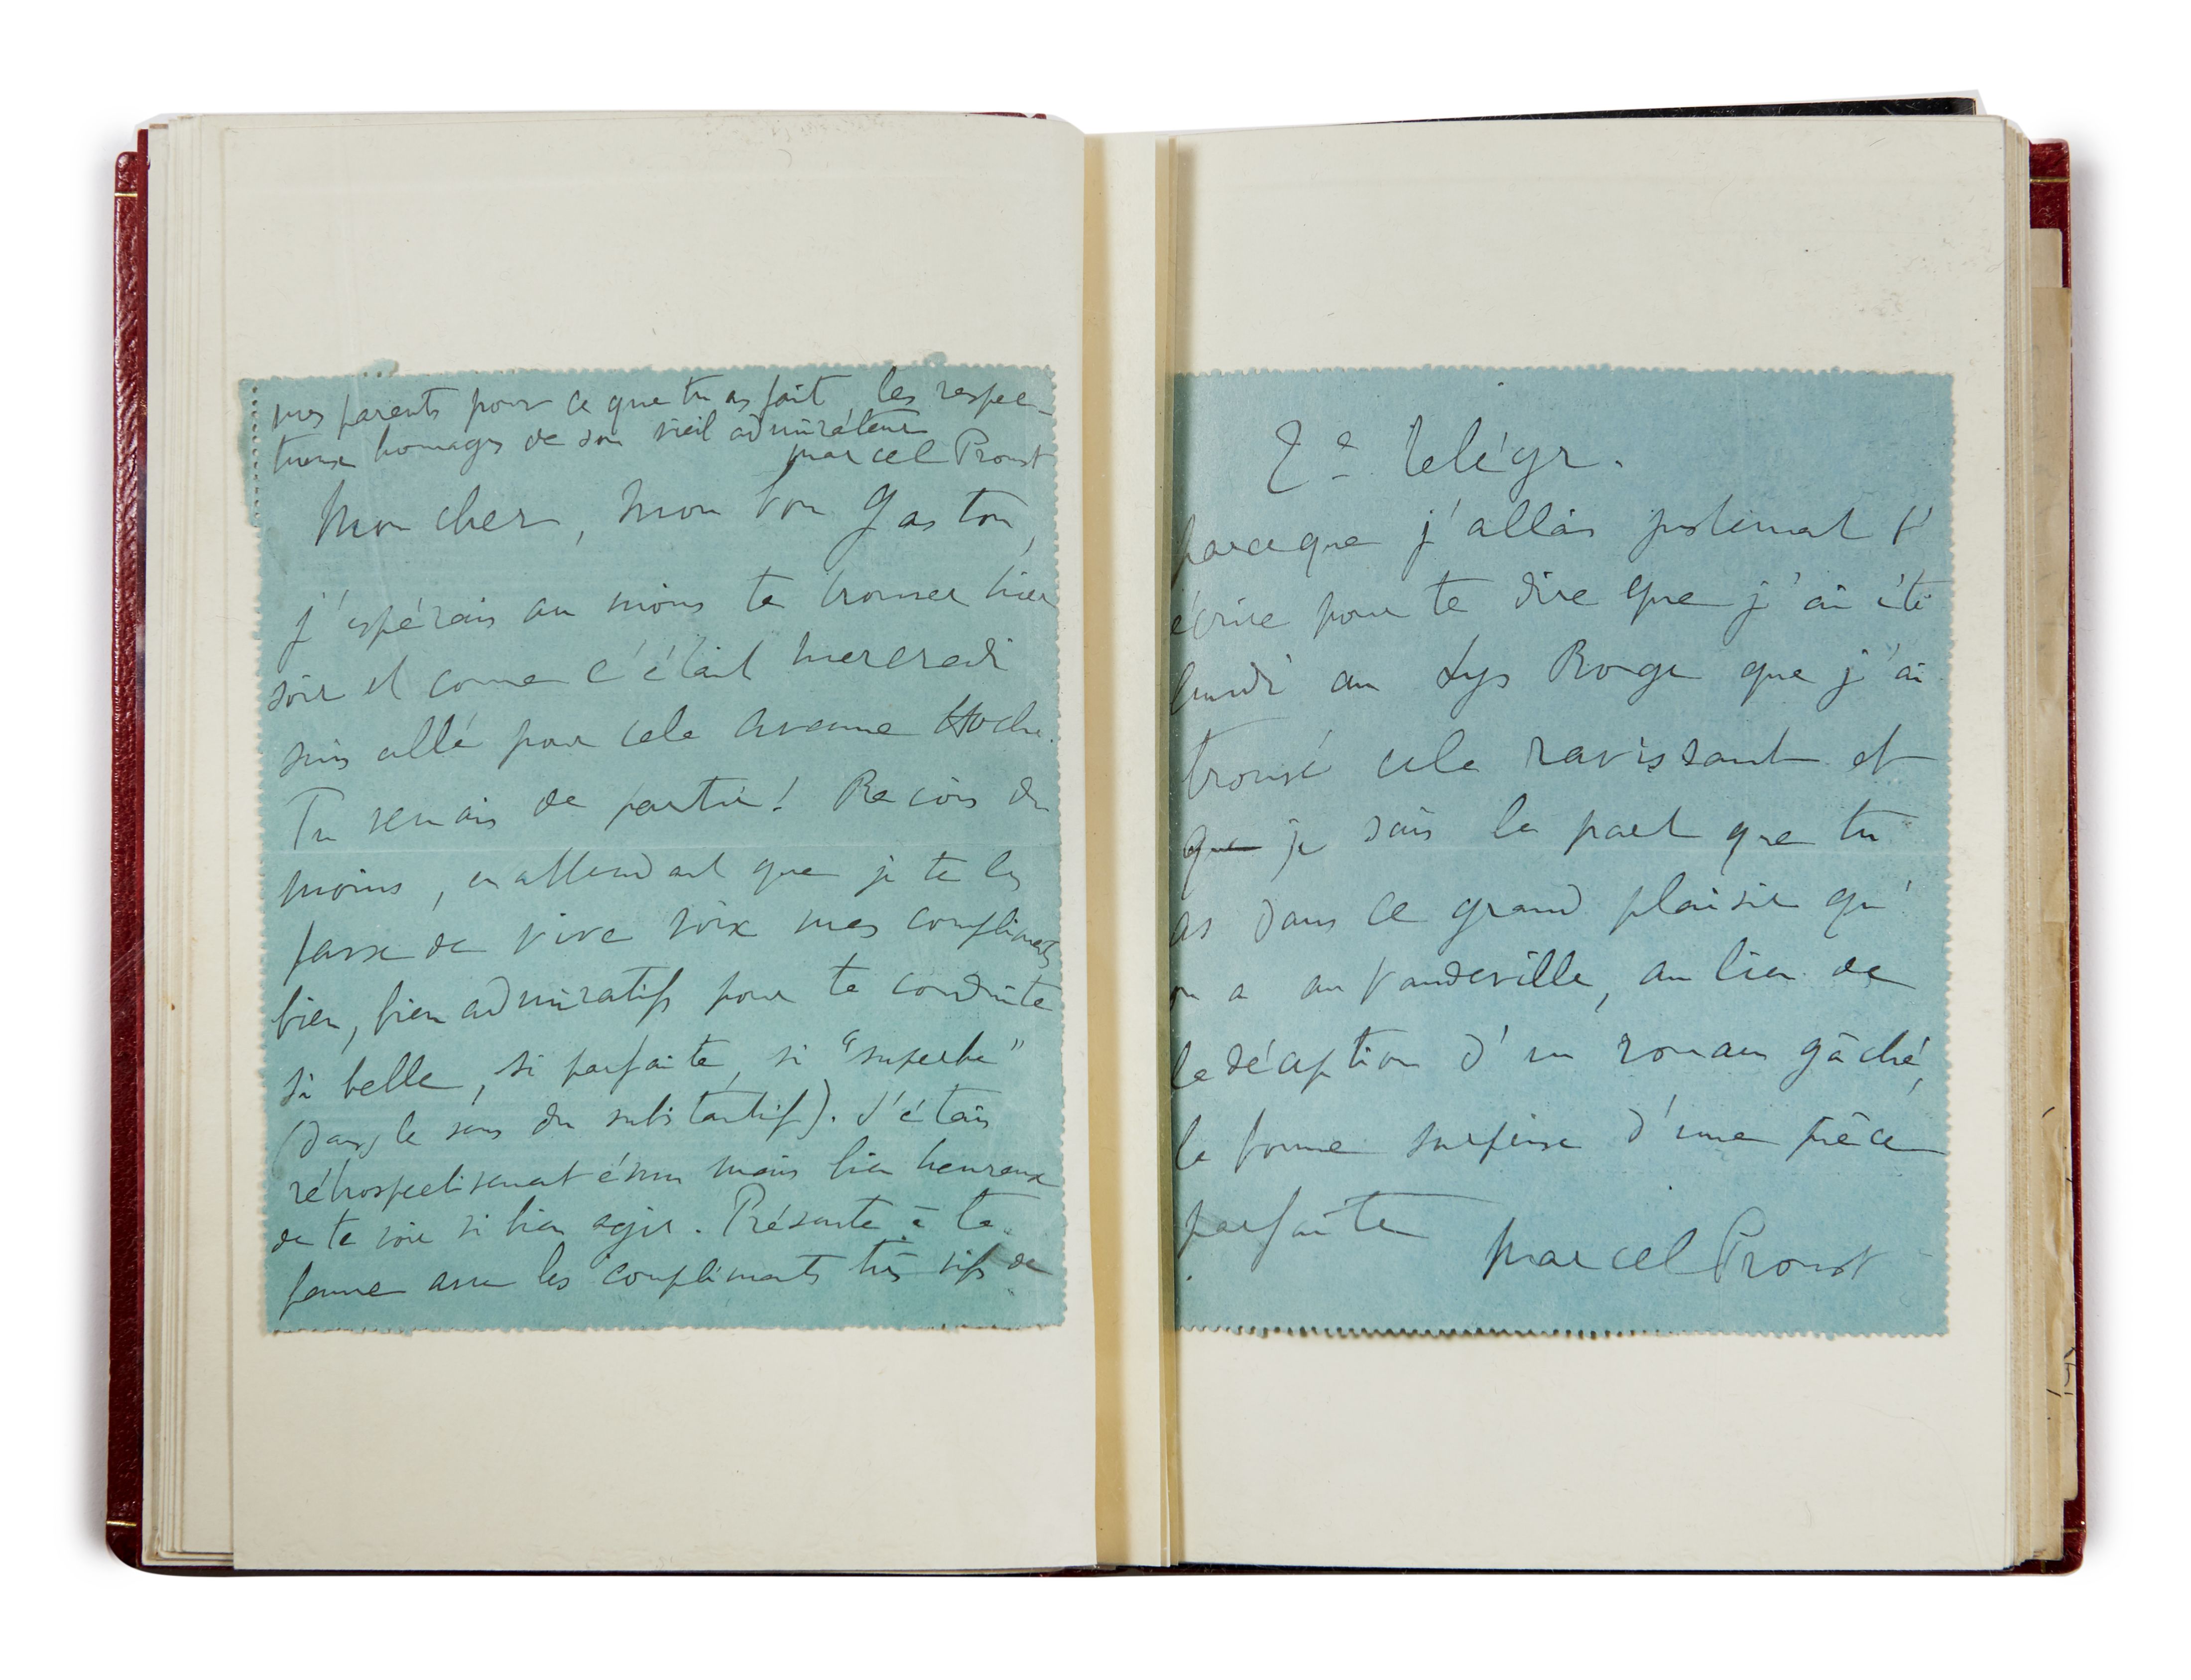 mes parents pour ce que tu as fait les respec-
tueux homages de son vieil admirateur
Marcel Proust
Mon cher, mon bon Gaston,
j'espérais au moins te trouver hier
soir et come c'était mercredi
suis allé pour cela avenue Hoche.
Tu venais de partir ! Reçois du
moins, en attendant que je te les
fasse de vive voix mes compliments
bien, bien admiratifs pour ta conduite
si belle, si parfaite, si "superbe"
(dans le sens du substantif). J'étais
rétrospectivement ému mais bien heureux
de te voir si bien agir. Présente à ta
femme avec les compliments très vifs de
2e télégr.
parceque j'allais justement t'
écrire pour te dire que j'ai été
lundi au Lys Rouge que j'ai
trouvé cela ravissant et
que je sais la part que tu
as dans ce grand plaisir qu'
on a au Vaudeville, au lieu de
la déception d'un roman gâché,
la bonne surprise d'une pièce
parfaite
Marcel Proust